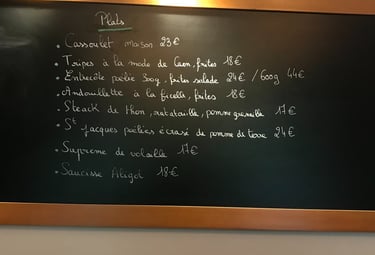 Plats
• Cassoulet maison 23€
• Tripes à la mode de Caen, frites 18€
• Entrecôte poêlée 300g, frites salade 24€ / 600g 44€
• Andouillette à la ficelle, frites 18€
• Steack de thon, ratatouille, pomme grenaille 17€
• St jacques poêlées écrasé de pomme de terre 24€
• Supreme de volaille 17€
• Saucisse Aligot 18€